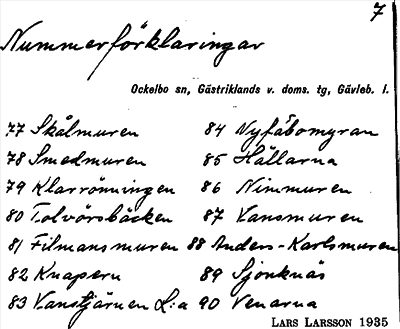 7
Nummerförklaringar
Ockelbo sn, Gästriklands v. doms. tg, Gävleb. l.
77 Skålmuren
78 Smedmuren
79 Klarrönningen
80 Tolvörsbäcken
81 Filmansmuren
82 Knapern
83 Vanstjärnen L:a
84 Nyfäbomyran
85 Hällarna
86 Nimmuren
87 Vansmuren
88 Anders-Karlsmuren
89 Sjönknäs
90 Venarna
LARS LARSSON 1935